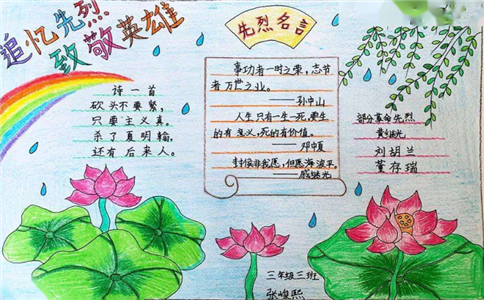 追忆先烈
致敬英雄
先烈名言
诗一首
砍头不要紧,
只要主义真。
杀了夏明翰,
还有后来人。
事功者一时之荣,志节
者万世之业。
——孙中山
人生只有一生一死,要生
的有意义,死的有价值。
——邓中夏
封侯非我愿,但愿海波平。
——戚继光
部分革命先烈
黄继光
刘胡兰
董存瑞
三年级三班
张峻熙